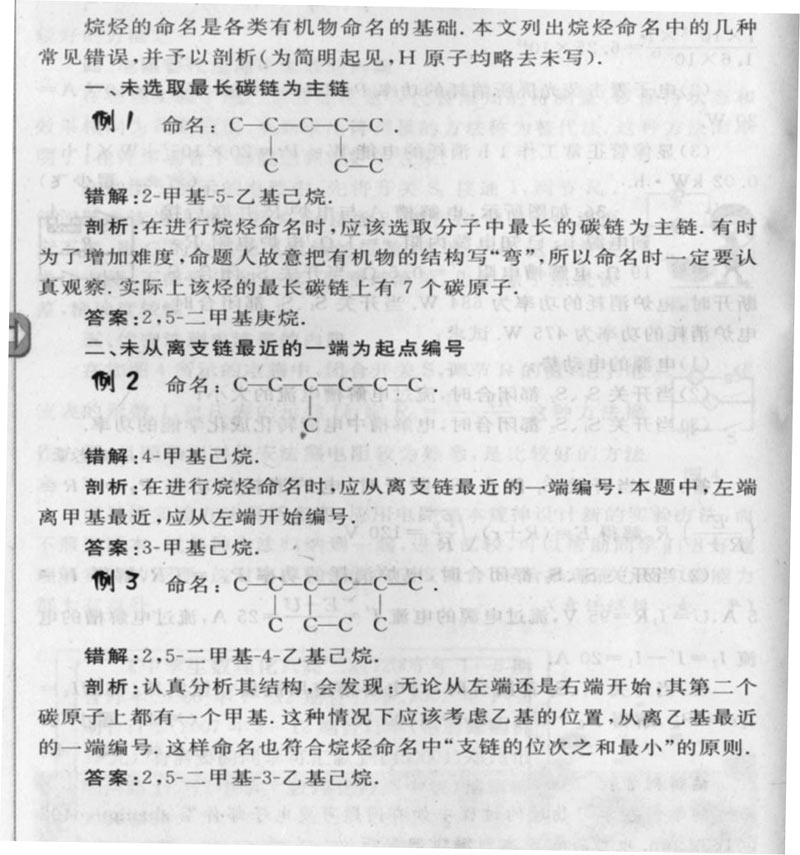 烷烃的命名是各类有机物命名的基础.本文列出烷烃命名中的几种
常见错误,并予以剖析(为简明起见,H 原子均略去未写).
一、未选取最长碳链为主链
例 1 命名: C—C—C—C—C
C C—C .
错解:2-甲基-5-乙基己烷.
剖析:在进行烷烃命名时,应该选取分子中最长的碳链为主链.有时
为了增加难度,命题人故意把有机物的结构写“弯”,所以命名时一定要认
真观察.实际上该烃的最长碳链上有 7 个碳原子.
答案:2,5-二甲基庚烷.
二、未从离支链最近的一端为起点编号
例 2 命名: C—C—C—C—C—C .
C
错解:4-甲基己烷.
剖析:在进行烷烃命名时,应从离支链最近的一端编号.本题中,左端
离甲基最近,应从左端开始编号.
答案:3-甲基己烷.
例 3 命名: C—C—C—C—C—C .
C C—C C
错解:2,5-二甲基-4-乙基己烷.
剖析:认真分析其结构,会发现:无论从左端还是右端开始,其第二个
碳原子上都有一个甲基.这种情况下应该考虑乙基的位置,从离乙基最近
的一端编号,这样命名也符合烷烃命名中“支链的位次之和最小”的原则.
答案:2,5-二甲基-3-乙基己烷.